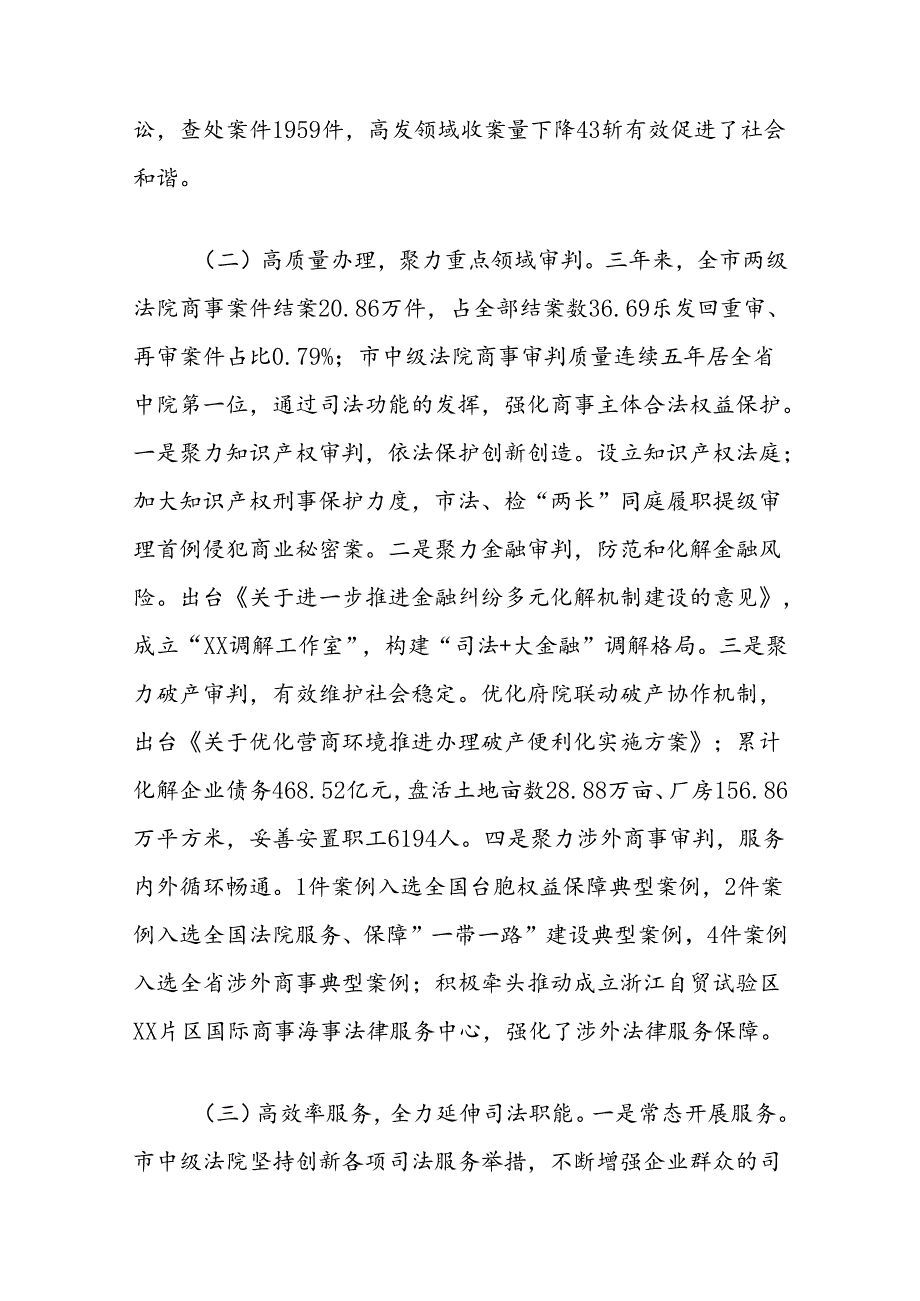 讼，查处案件1959件，高发领域收案量下降43斩有效促进了社会
和谐。
（二）高质量办理，聚力重点领域审判。三年来，全市两级
法院商事案件结案20.86万件，占全部结案数36.69乐发回重审、
再审案件占比0.79%；市中级法院商事审判质量连续五年居全省
中院第一位，通过司法功能的发挥，强化商事主体合法权益保护。
一是聚力知识产权审判，依法保护创新创造。设立知识产权法庭；
加大知识产权刑事保护力度，市法、检“两长”同庭履职提级审
理首例侵犯商业秘密案。二是聚力金融审判，防范和化解金融风
险。出台《关于进一步推进金融纠纷多元化解机制建设的意见》，
成立“XX调解工作室”，构建“司法+大金融”调解格局。三是聚
力破产审判，有效维护社会稳定。优化府院联动破产协作机制，
出台《关于优化营商环境推进办理破产便利化实施方案》；累计
化解企业债务468.52亿元，盘活土地亩数28.88万亩、厂房156.86
万平方米，妥善安置职工6194人。四是聚力涉外商事审判，服务
内外循环畅通。1件案例入选全国台胞权益保障典型案例，2件案
例入选全国法院服务、保障”一带一路”建设典型案例，4件案例
入选全省涉外商事典型案例；积极牵头推动成立浙江自贸试验区
XX片区国际商事海事法律服务中心，强化了涉外法律服务保障。
（三）高效率服务，全力延伸司法职能。一是常态开展服务。
市中级法院坚持创新各项司法服务举措，不断增强企业群众的司